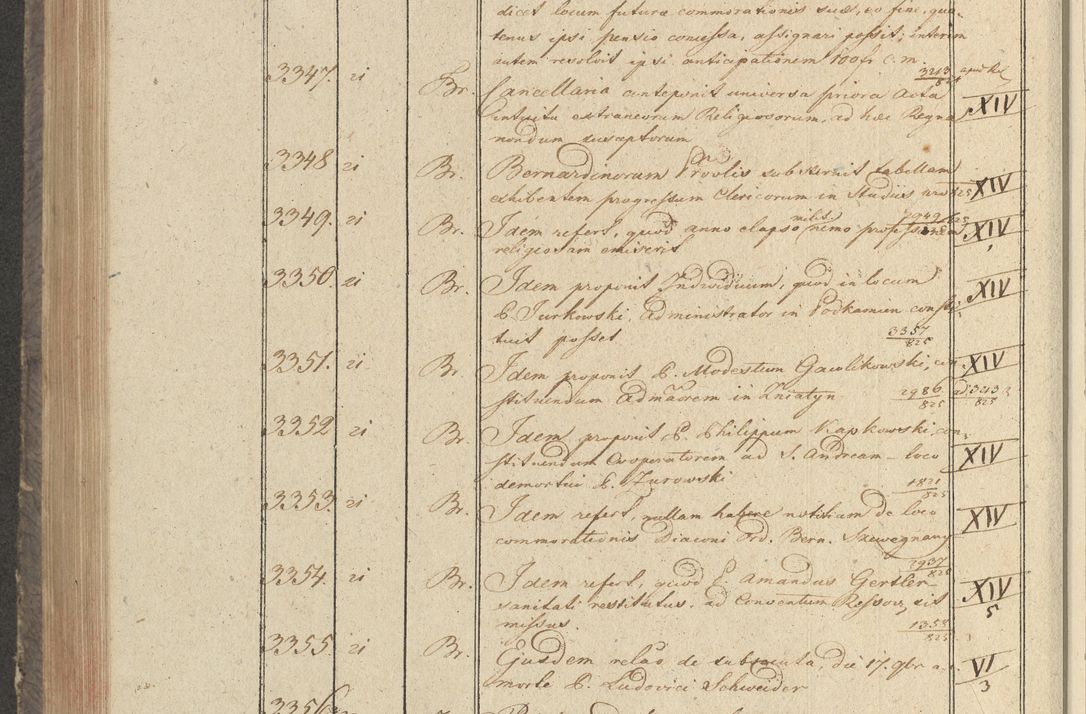 dicet locum futurae commorationis suae, eo fine, qua-
tenus ipsi pensio concessa, assignari possit; interim
autem resolvit ipsi anticipationem 100 fr C. m. 3213/825
3347. 21 Br. Cancellaria anteponit universa priora Acta XIV
intuitu extraneorum Religiosorum, ad haec Regna
nondum susceptorum
3348 21 Br. Bernardinorum Provlis substernit tabellam
exhibentem progressum Clericorum in Studiis 825 XIV
3349. 21 Br. Idem refert, quod anno elapso milit. nemo professionem XIV
religiosam emiserit
3350. 21 Br. Idem proponit Individuum, quod in locum XIV
P. Jurkowski, Administrator in Podkamien consti-
tuit posset 3357/825
3351. 21 Br. Idem proponit P. Modestum Gaulikowski, con- XIV
stituendum Admāorem in Zniatyn 2986/825 ad 3213/825
3352 21 Br. Idem proponit P. Philippum Kapkowski, con-
stituendum Cooperatorem ad S. Andream – loco XIV
demortui P. Zurowski 1821/825
3353. 21 Br. Idem refert, nullam habere notitiam de loco XIV
commorationis Diaconi Ord. Bern. Szewegnany
2937/825
3354. 21 Br. Idem refert, quod P. Amandus Gertler XIV
sanitati restitutus, ad Conventum Ressov, sit 5
missus. 1358/825
3355 21 Br. Ejusdem relao de subsecuta, die 17. 9br a. c. VI
morte P. Ludovici Schweider 3
3356